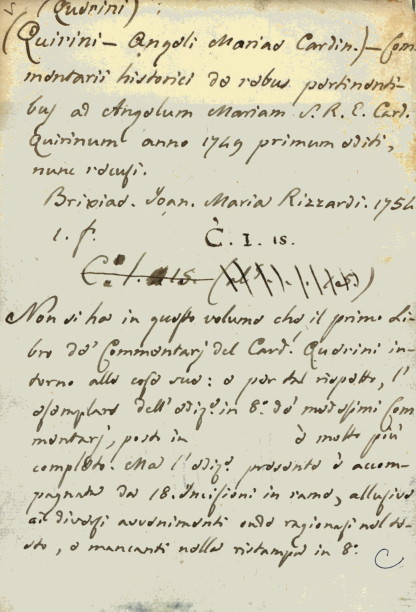 (Querini) ;
(Quirini - Angeli Mariae Cardin.) - Com
mentarii historici de rebus pertinenti-
bus ad Angelum Mariam S. R. E. Card.
Quirinum anno 1749 primum editi,
nunc recusi.
Brixiae. Joan. Maria Rizzardi. 1754
1. f.
C. I. 18.
C. I. 18.
Non si ha in questo volume che il primo li-
bro de' Commentarj del Card. Querini in-
torno alle cose sue: e per tal rispetto, l'
esemplare dell' ediz.e in 8.o de' medesimi Com
mentarj, posto in è molto più
completo. Ma l' ediz.e presente è accom-
pagnata da 18. incisioni in rame, allusive
ai diversi avvenimenti onde ragionasi nel te-
sto, e mancanti nella ristampa in 8.o